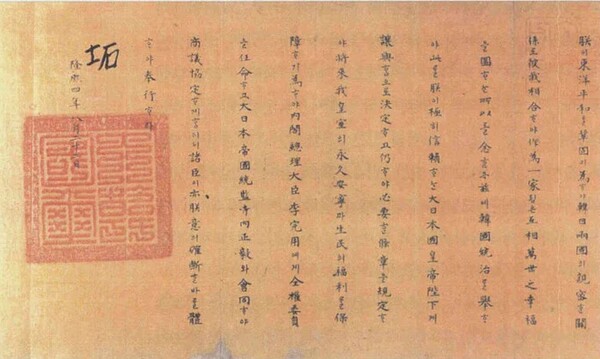 朕이東洋平和를鞏固히爲ᄒᆞ야韓日兩國의親密ᄒᆞᆫ關
係로彼我相合ᄒᆞ야作爲一家ᄒᆞᆷ은互相萬世之幸福
을圖ᄒᆞᄂᆞᆫ所以를念ᄒᆞᆫ則玆에韓國統治를擧ᄒᆞ
야此를朕이極히信賴ᄒᆞᄂᆞᆫ大日本國皇帝陛下께
讓與ᄒᆞᆷ으로決定ᄒᆞ고仍ᄒᆞ야必要ᄒᆞᆫ條章을規定ᄒᆞ
야將來我皇室의永久安寧과生民의福利를保
障ᄒᆞ기爲ᄒᆞ야內閣總理大臣李完用에게全權委員
을任命ᄒᆞ고大日本帝國統監寺內正毅와會同ᄒᆞ야
商議協定ᄒᆞ게ᄒᆞ노니諸臣이亦朕意의確斷ᄒᆞᆫ바를體
ᄒᆞ야奉行ᄒᆞ라
隆熙四年八月二十二日
坧